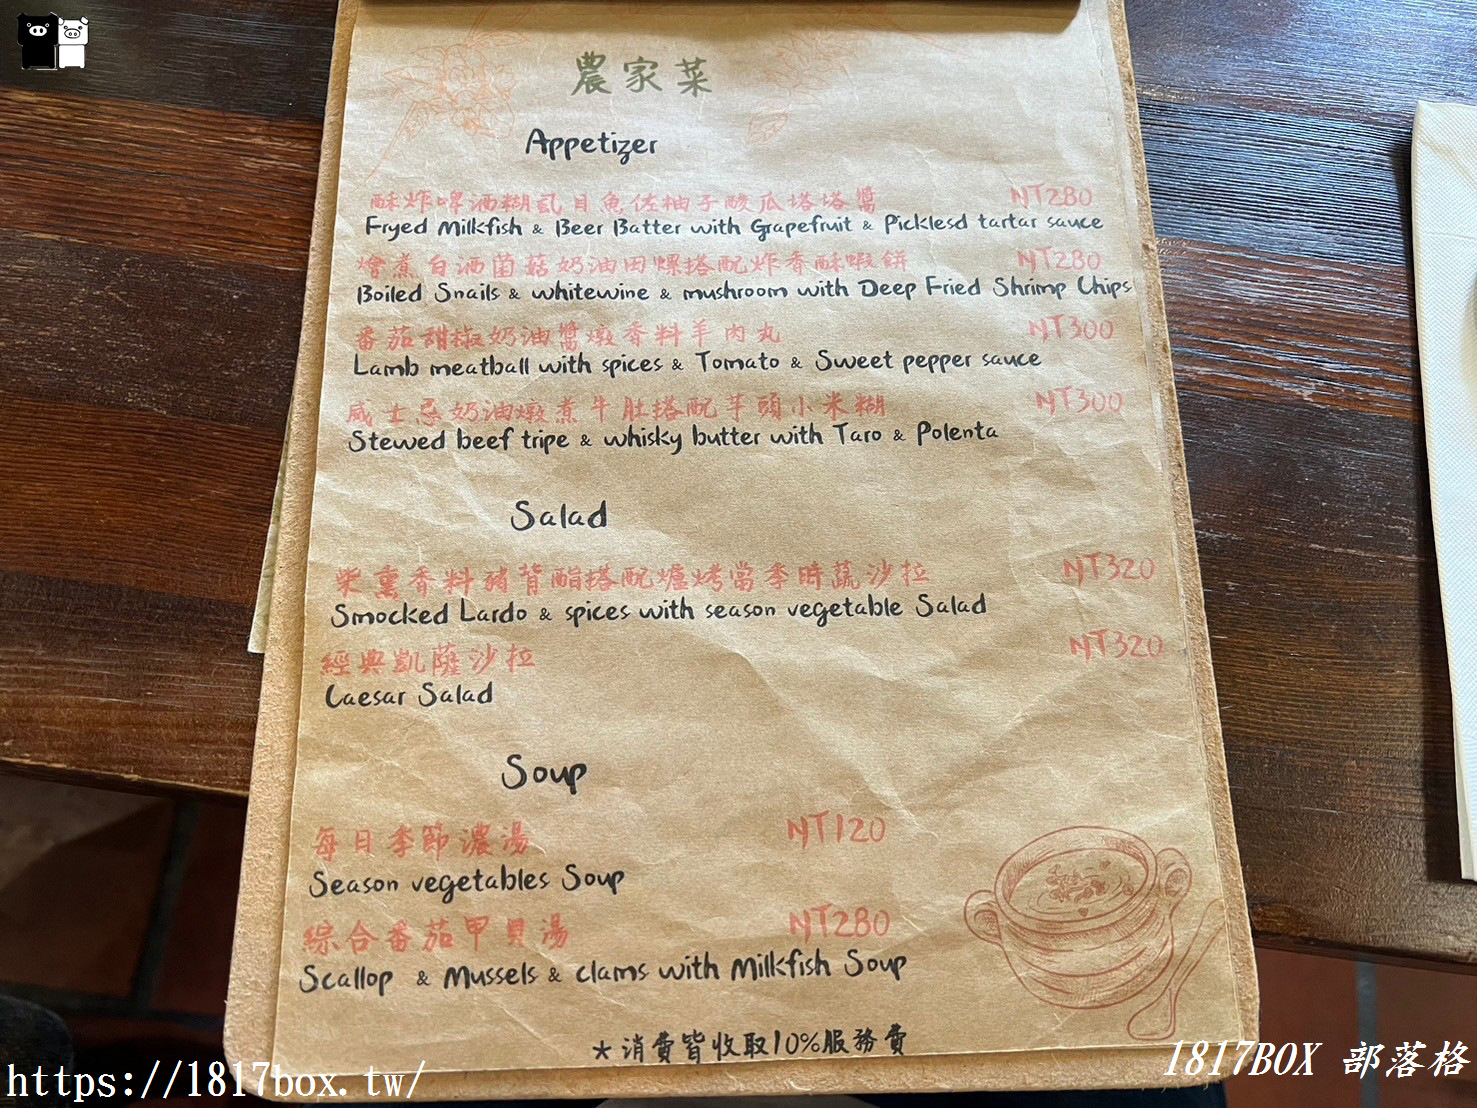 農家菜
Appetizer
酥炸啤酒糊虱目魚佐柚子酸瓜塔塔醬 NT280
Fryed Milkfish & Beer Batter with Grapefruit & Picklesd tartar sauce
燴煮白酒菌菇奶油田螺搭配炸香酥蝦餅 NT280
Boiled Snails & whitewine & mushroom with Deep Fried Shrimp Chips
番茄甜椒奶油醬燉香料羊肉丸 NT300
Lamb meatball with spices & Tomato & Sweet pepper sauce
威士忌奶油燉煮牛肚搭配芋頭小米糊 NT300
Stewed beef tripe & whisky butter with Taro & Polenta
Salad
柴熏香料豬背脂搭配爐烤當季時蔬沙拉 NT320
Smocked Lardo & spices with season vegetable Salad
經典凱薩沙拉 NT320
Caesar Salad
Soup
每日季節濃湯 NT120
Season vegetables Soup
綜合番茄甲貝湯 NT280
Scallop & Mussels & clams with Milkfish Soup
*消費皆收取10%服務費
https://1817box.tw/
1817BOX 部落格